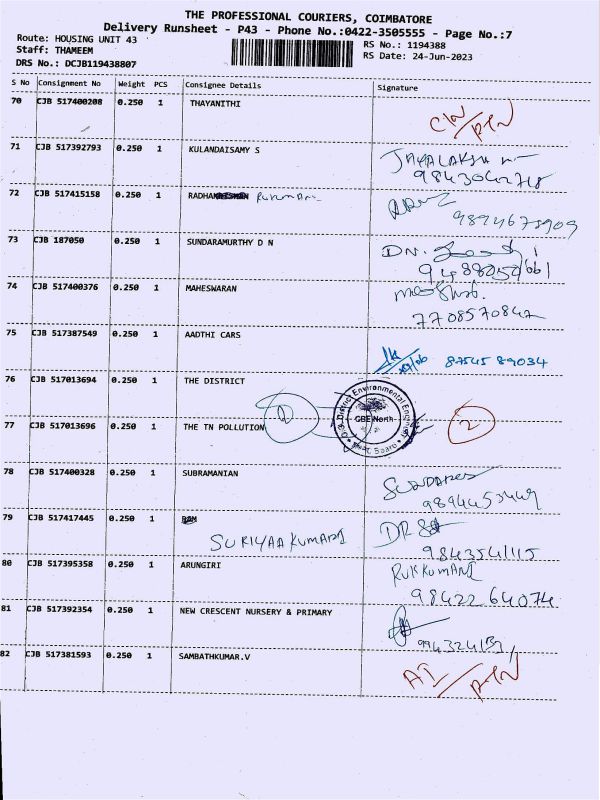 THE PROFESSIONAL COURIERS, COIMBATORE
Delivery Runsheet - P43 - Phone No.:0422-3505555 - Page No.:7
Route: HOUSING UNIT 43
Staff: THAMEEM
DRS No.: DCJB119438807
RS No.: 1194388
RS Date: 24-Jun-2023
S No Consignment No Weight PCS Consignee Details Signature
70 CJB 517400208 0.250 1 THAYANITHI
71 CJB 517392793 0.250 1 KULANDAISAMY S
9843042718
72 CJB 517415158 0.250 1 RADHA
9894675909
73 CJB 187050 0.250 1 SUNDARAMURTHY D N
DN.
74 CJB 517400376 0.250 1 MAHESWARAN
7708570842
75 CJB 517387549 0.250 1 AADTHI CARS
87545 89034
76 CJB 517013694 0.250 1 THE DISTRICT
1
77 CJB 517013696 0.250 1 THE TN POLLUTION
District Environmental Engineer
CBE North
2
78 CJB 517400328 0.250 1 SUBRAMANIAN
9894453449
79 CJB 517417445 0.250 1
SURIYAA KUMARI
DR
9843541115
80 CJB 517395358 0.250 1 ARUNGIRI
RUKKUMANI
98422 64074
81 CJB 517392354 0.250 1 NEW CRESCENT NURSERY & PRIMARY
82 CJB 517381593 0.250 1 SAMBATHKUMAR.V